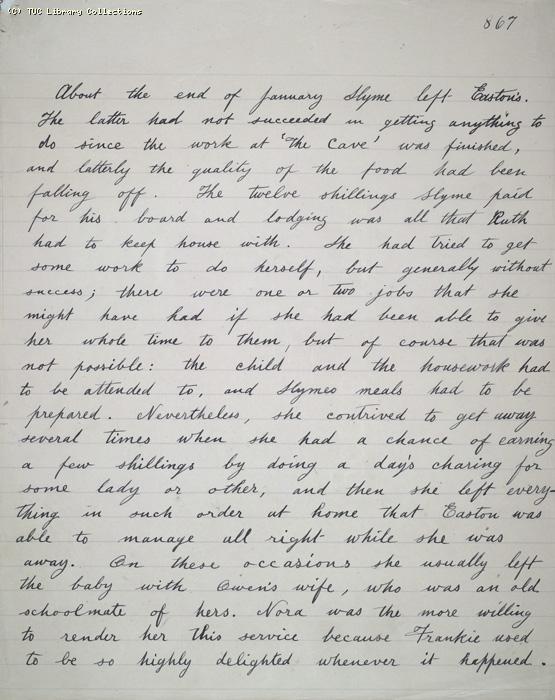 (C) TUC Library Collections
867
About the end of January Slyme left Eastons.
The latter had not succeeded in getting anything to
do since the work at 'The Cave' was finished,
and latterly the quality of the food had been
falling off. The twelve shillings Slyme paid
for his board and lodging was all that Ruth
had to keep house with. She had tried to get
some work to do herself, but generally without
success; there were one or two jobs that she
might have had if she had been able to give
her whole time to them, but of course that was
not possible: the child and the housework had
to be attended to, and Slymes meals had to be
prepared. Nevertheless, she contrived to get away
several times when she had a chance of earning
a few shillings by doing a day's charing for
some lady or other, and then she left every-
thing in such order at home that Easton was
able to manage all right while she was
away. On these occasions she usually left
the baby with Owen's wife, who was an old
schoolmate of hers. Nora was the more willing
to render her this service because Frankie used
to be so highly delighted whenever it happened.